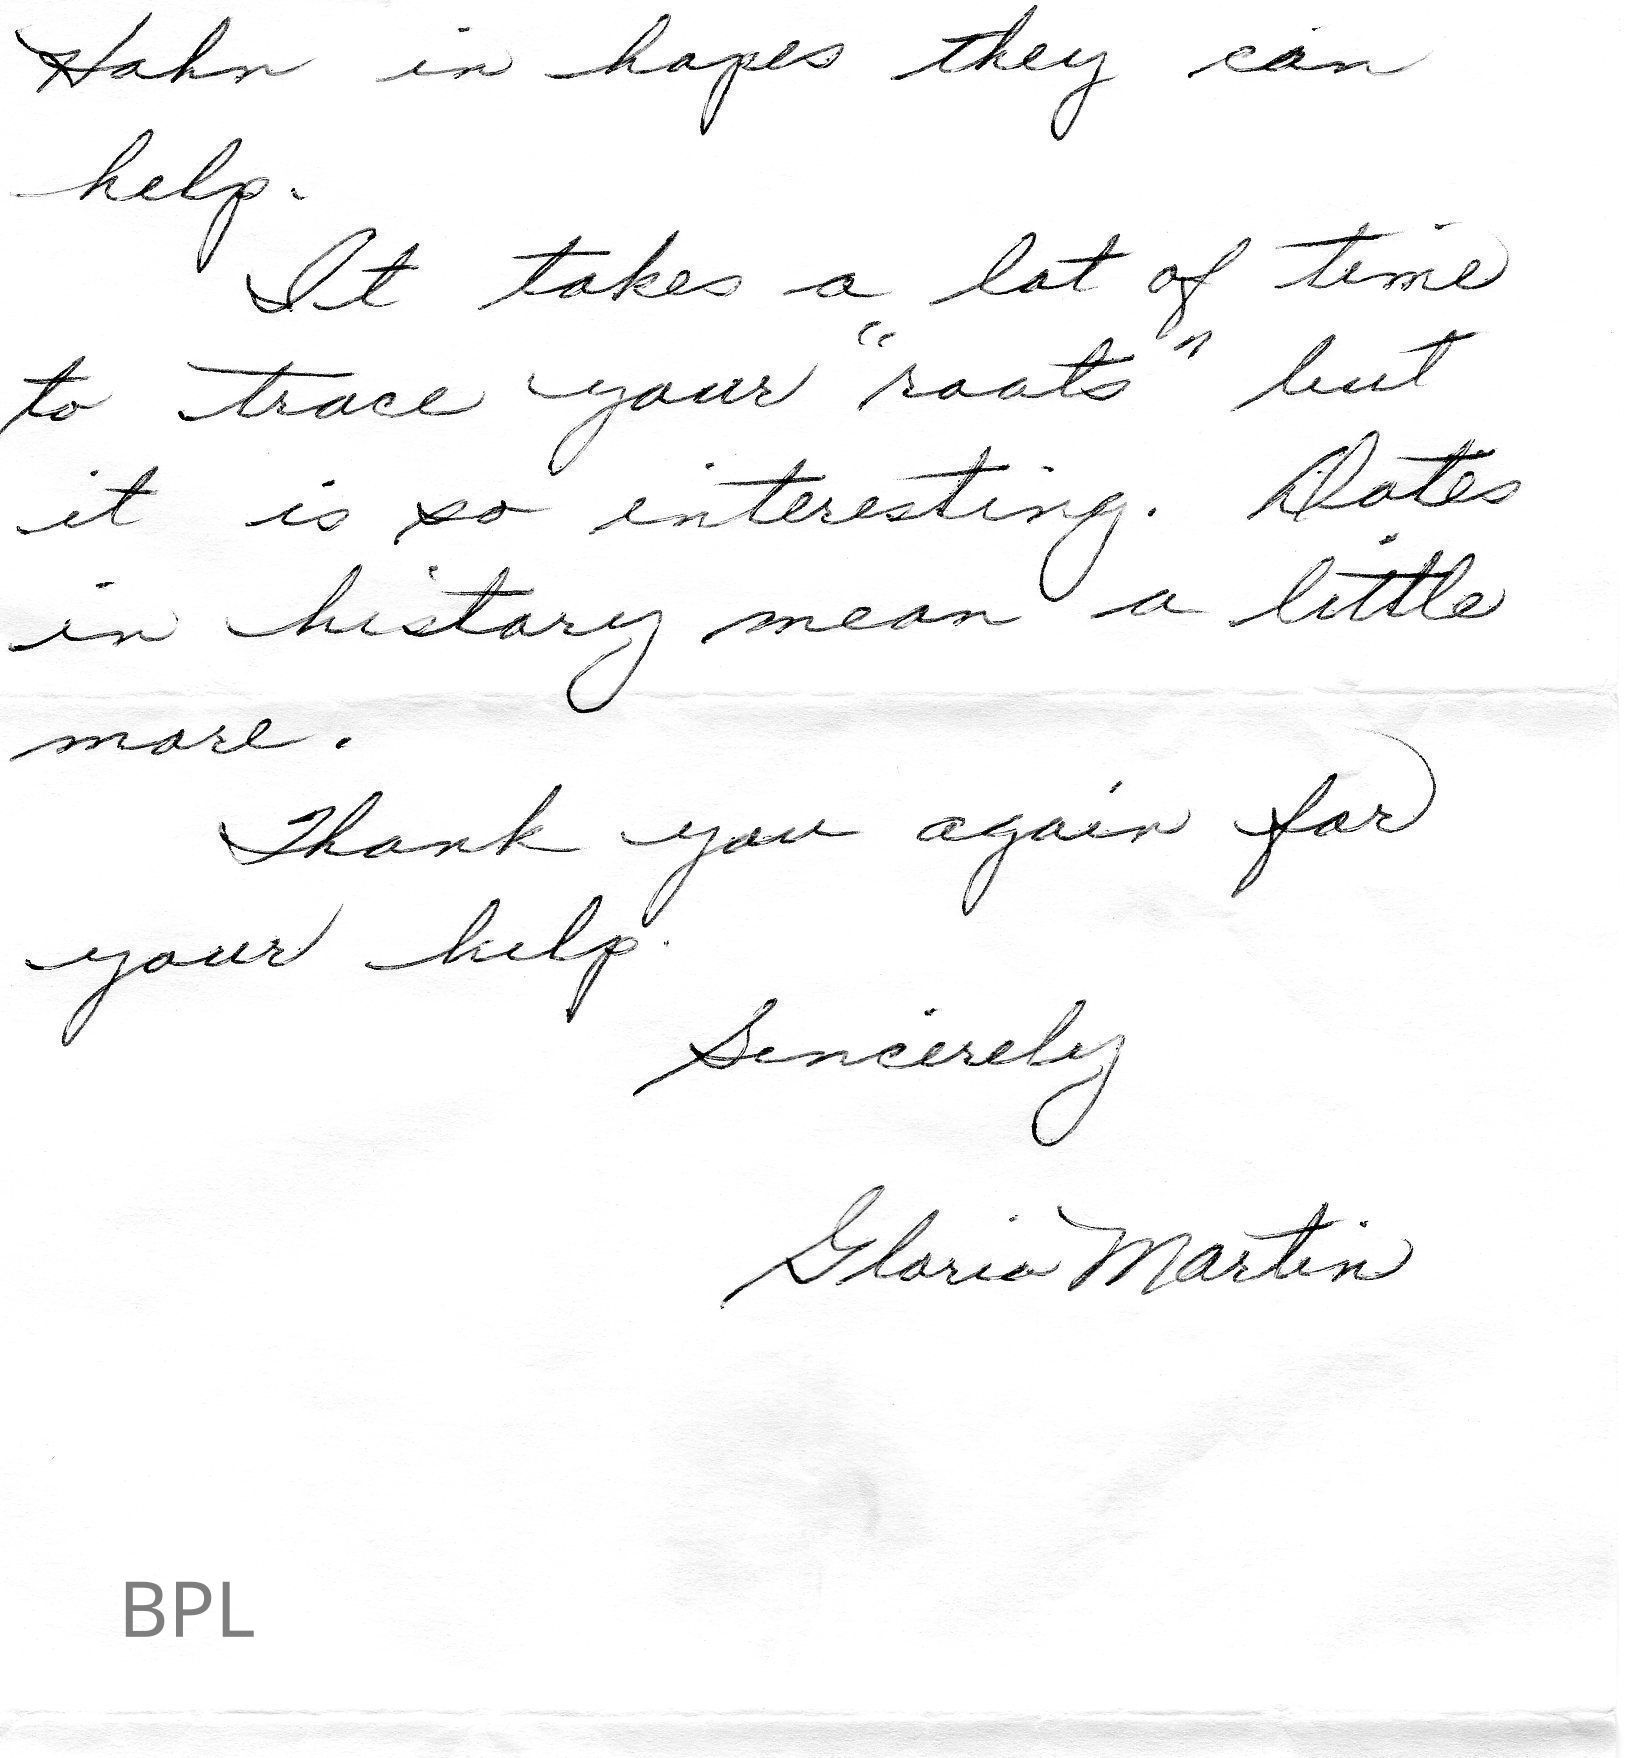 Hahn in hopes they can
help.
It takes a lot of time
to trace your "roots" but
it is so interesting. Dates
in history mean a little
more.
Thank you again for
your help.
Sincerely
Gloria Martin
BPL